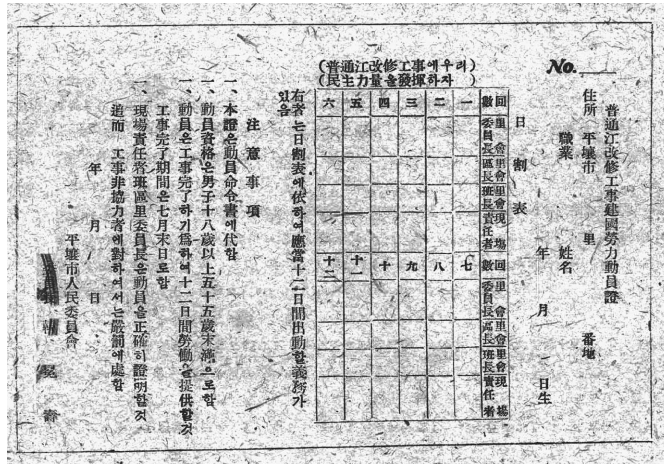 No.
普通江改修工事建國勞力動員證
住所 平壤市 里 番地
職業 姓名
年 月 日生
(普通江改修工事에우리)
(民主力量을發揮하자)
日割表
回數 一 二 三 四 五 六
里會委員長
里會區長
里會班長
現場責任者
回數 七 八 九 十 十一 十二
里會委員長
里會區長
里會班長
現場責任者
右者는日割表에依하여應當十二日間出動할義務가
있음
注意事項
一、本證은動員命令書에代함
一、動員資格은男子十八歲以上五十五歲末滿으로함
一、動員은工事完了하기爲하여十二日間勞働을提供할것
工事完了期間은七月末日로함
一、現場責任者班區里委員長은動員을正確히證明할것
追而 工事非協力者에對하여서는嚴罰에處함
年 月 日
平壤市人民委員會